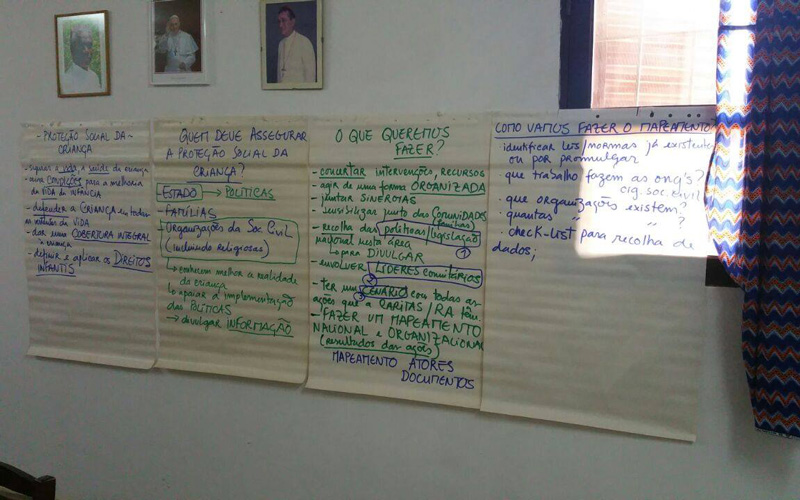 - PROTEÇÃO SOCIAL DA -
CRIANÇA
a vida, a saúde da criança
condições para a melhoria
da VIDA de INFÂNCIA
- defender a CRIANÇA em todas
da VIDA
- dar uma COBERTURA INTEGRAL
à criança
- definir e aplicar os DIREITOS
INFANTIS
QUEM DEVE ASSEGURAR
A PROTEÇÃO SOCIAL DA
CRIANÇA?
ESTADO → POLÍTICAS
FAMÍLIAS
Organizações da Soc Civil
(incluindo religiosas)
→ conhecem melhor a realidade
da criança
↳ apoiar a implementação
das POLÍTICAS
→ divulgar INFORMAÇÃO
O QUE QUEREMOS
FAZER?
- concertar INTERVENÇÕES, RECURSOS
- agir de uma forma ORGANIZADA
- juntar SINERGIAS
- sensibilizar junto das Comunidades
(famílias)
- recolha das políticas/legislação
nacional nesta área 1
↳ para DIVULGAR
- envolver LÍDERES comunitários
2
- ter um CENÁRIO com todas as
3
ações que a CARITAS/RA têm.
- FAZER UM MAPEAMENTO
NACIONAL e ORGANIZACIONAL
(resultados das ações)
MAPEAMENTO ATORES
DOCUMENTOS
COMO VAMOS FAZER O MAPEAMENTO
identificar leis/normas já existentes
ou por promulgar
que trabalho fazem as ong's?
org. soc. civil
. que organizações existem?
. quantas " " ?
. check-list para recolha de
dados;